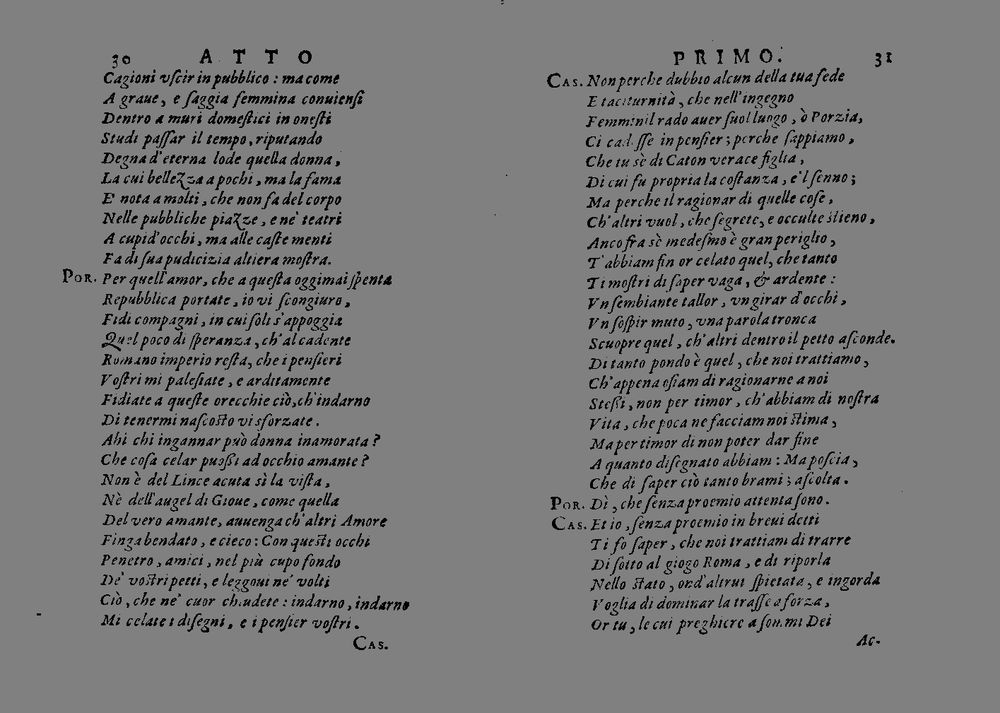 30 ATTO
Cagioni vſcir in pubblico : ma come
A graue, e ſaggia femmina conuienſi
Dentro a muri domeſtici in oneſti
Studi paſſar il tempo, riputando
Degna d'eterna lode quella donna,
La cui bellezza a pochi, ma la fama
E' nota a molti, che non fa del corpo
Nelle pubbliche piazze, e ne' teatri
A cupid'occhi, ma alle caſte menti
Fa di ſua pudicizia altiera moſtra.
POR. Per quell'amor, che a queſta oggimai ſpenta
Repubblica portate, io vi ſcongiuro,
Fidi compagni, in cui ſoli s'appoggia
Quel poco di ſperanza, ch'al cadente
Romano imperio reſta, che i penſieri
Voſtri mi paleſiate, e arditamente
Fidiate a queſte orecchie ciò, ch'indarno
Di tenermi naſcoſto vi sforzate.
Ahi chi ingannar può donna inamorata ?
Che coſa celar puoſſi ad occhio amante ?
Non è del Lince acuta sì la viſta,
Nè dell'augel di Gioue, come quella
Del vero amante, auuenga ch'altri Amore
Finga bendato, e cieco : Con queſti occhi
Penetro, amici, nel più cupo fondo
De' voſtri petti, e leggoui ne' volti
Ciò, che ne' cuor chiudete : indarno, indarno
Mi celate i diſegni, e i penſier voſtri.
CAS.
PRIMO. 31
CAS. Non perche dubbio alcun della tua fede
E taciturnità, che nell'ingegno
Femminil rado auer ſuol luogo, ò Porzia,
Ci cadeſſe in penſier ; perche ſappiamo,
Che tu ſè di Caton verace figlia,
Di cui fu propria la coſtanza, e'l ſenno ;
Ma perche il ragionar di quelle coſe,
Ch'altri vuol, che ſegrete, e occulte ſtieno,
Anco fra sè medeſmo è gran periglio,
T'abbiam fin or celato quel, che tanto
Ti moſtri di ſaper vaga, & ardente :
Vn ſembiante tallor, vn girar d'occhi,
Vn ſoſpir muto, vna parola tronca
Scuopre quel, ch'altri dentro il petto aſconde.
Di tanto pondo è quel, che noi trattiamo,
Ch'appena oſiam di ragionarne a noi
Steſſi, non per timor, ch'abbiam di noſtra
Vita, che poca ne facciam noi ſtima,
Ma per timor di non poter dar fine
A quanto diſegnato abbiam : Ma poſcia,
Che di ſaper ciò tanto brami ; aſcolta.
POR. Dì, che ſenza proemio attenta ſono.
CAS. Et io, ſenza proemio in breui detti
Ti fo ſaper, che noi trattiam di trarre
Di ſotto al giogo Roma, e di riporla
Nello ſtato, ond'altrui ſpietata, e ingorda
Voglia di dominar la traſſe a forza,
Or tu, le cui preghiere a ſommi Dei
Ac-